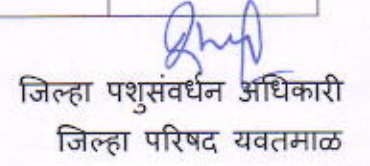 जिल्हा पशुसंवर्धन अधिकारी
जिल्हा परिषद यवतमाळ